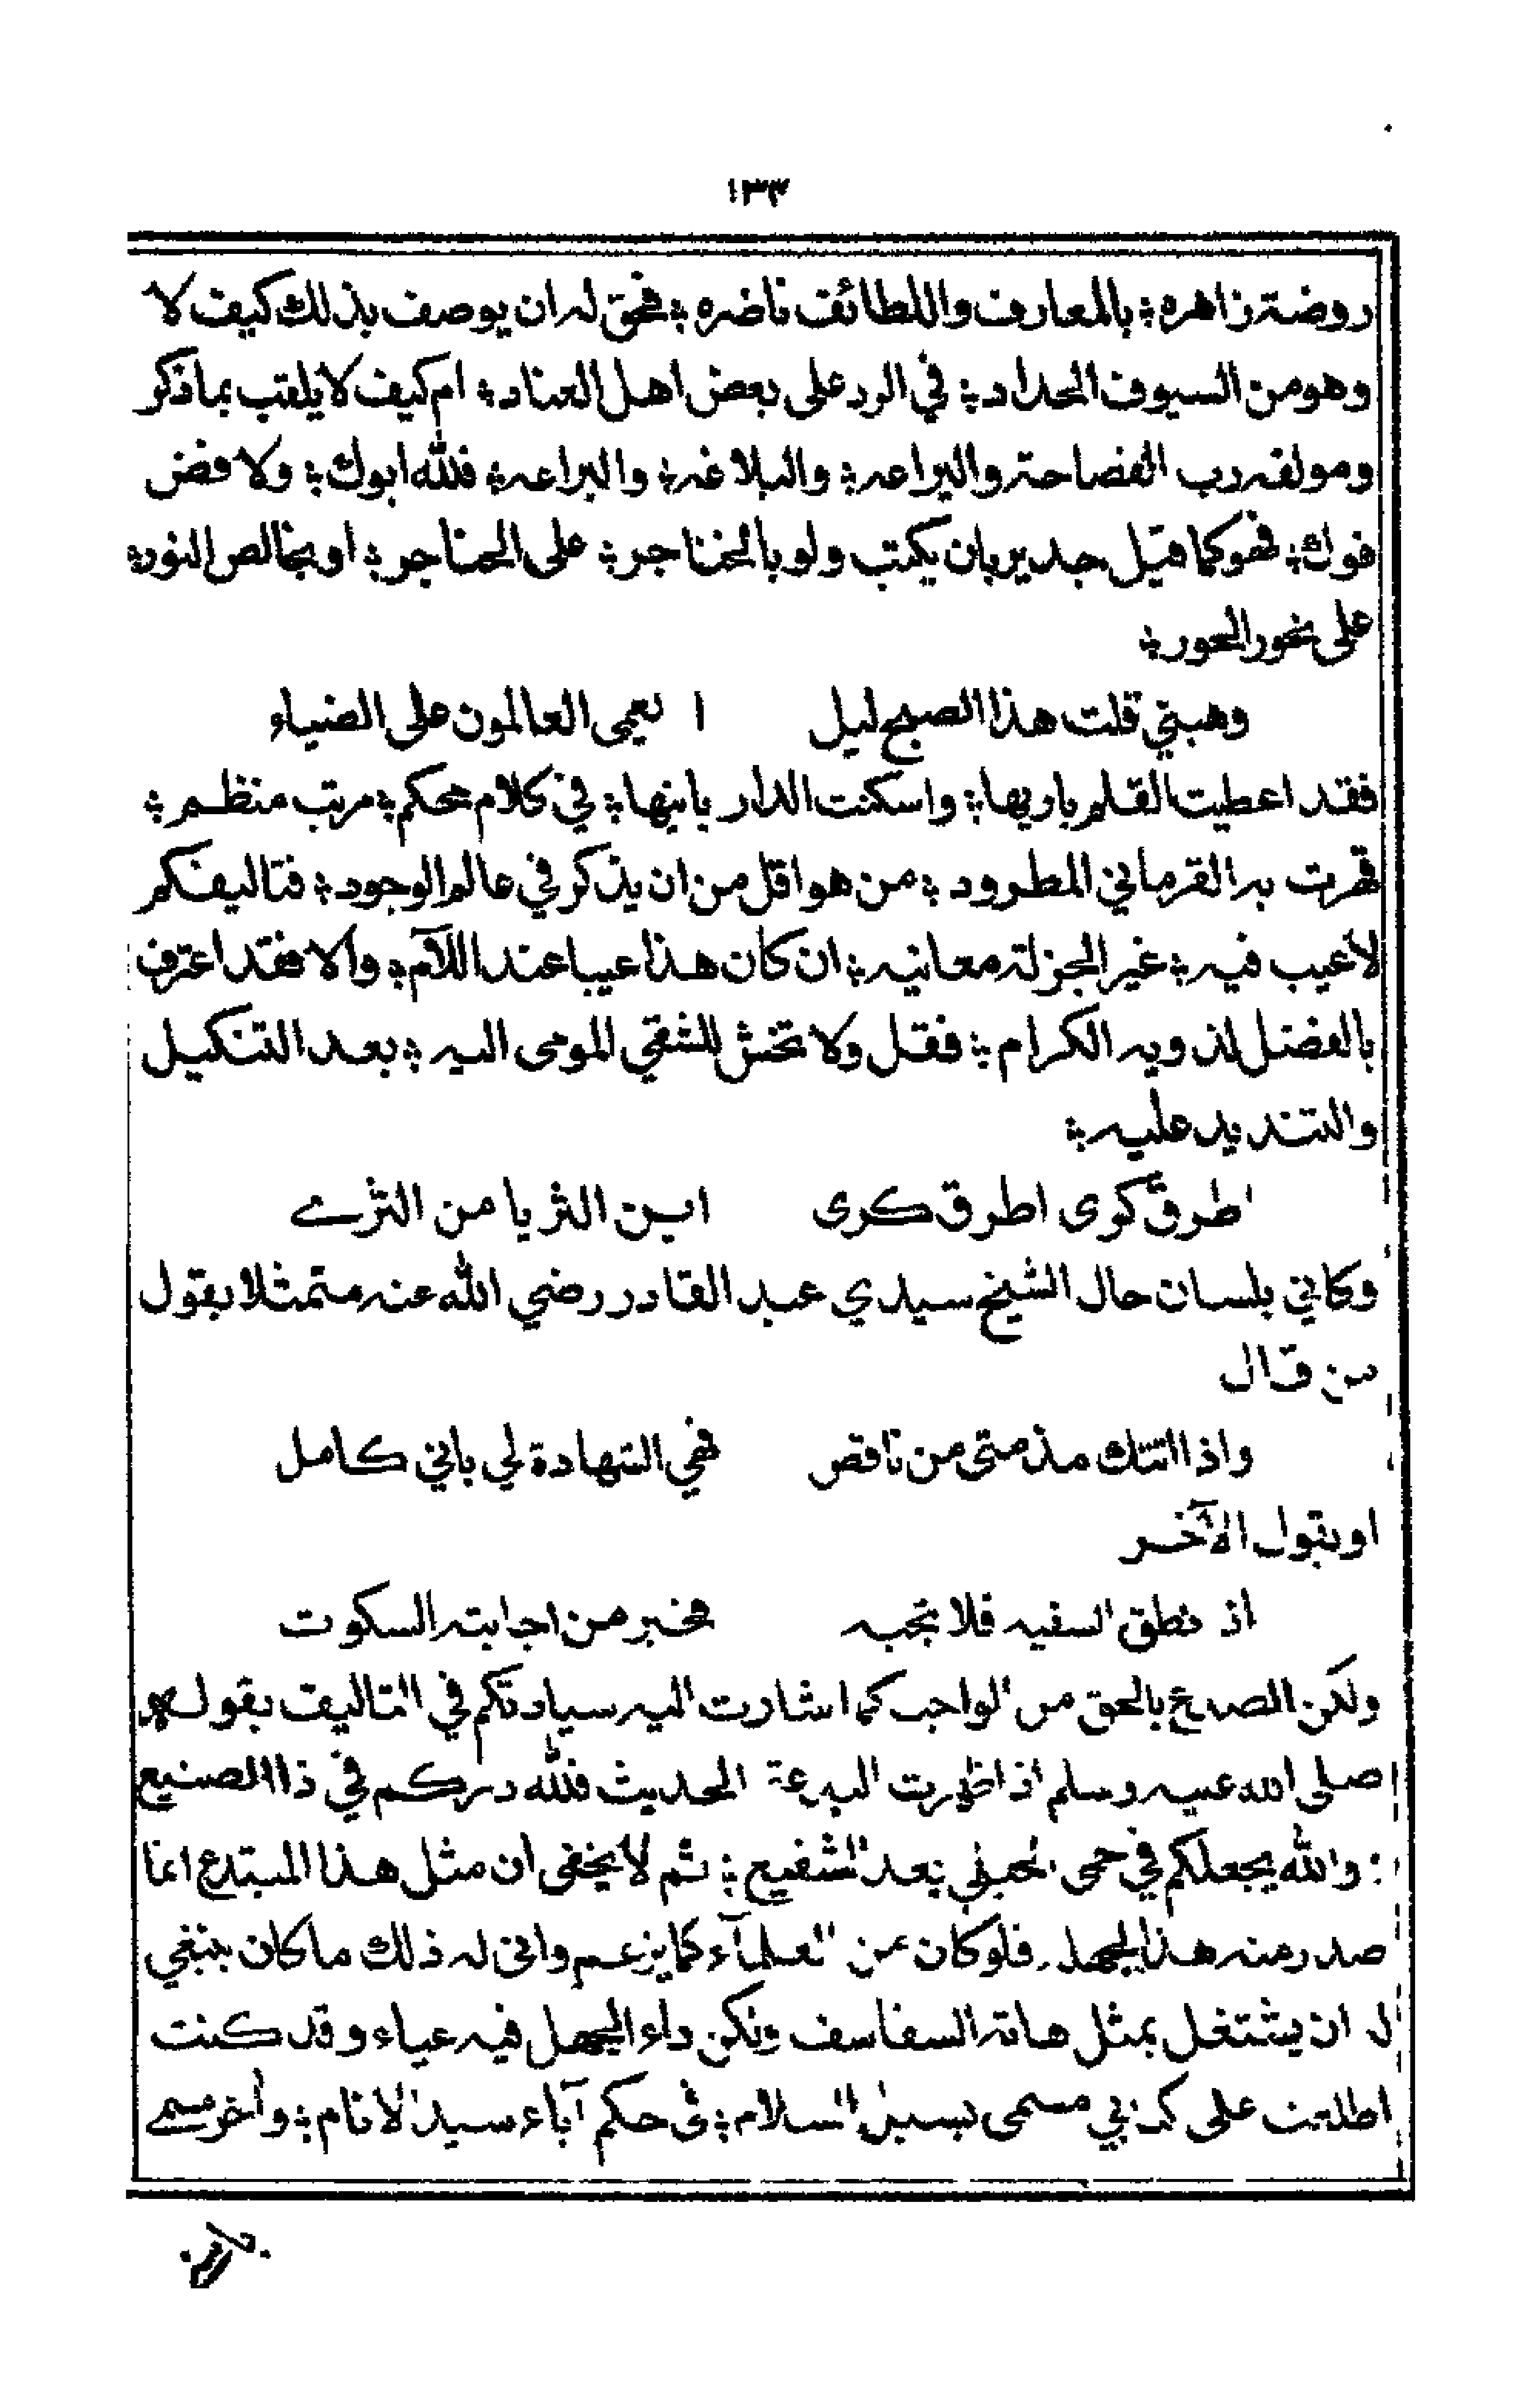 ١٣٣
روضة زاهره؛ بالمعارف واللطائف ناضره؛ فحق له ان يوصف بذلك كيف لا
وهو من السيوف الحداد؛ في الرد على بعض اهل العناد؛ ام كيف لا يلقب بما ذكر
ومولفه رب الفصاحة واليراعه؛ والبلاغه؛ والبراعه؛ فلله ابوك؛ ولا فض
فوك؛ فهو كما قيل جدير بان يكتب ولو بالخناجر؛ على الحناجر؛ او بخالص النور؛
على نحور الحور؛
وهبني قلت هذا الصبح ليل ا يعمى العالمون على الضياء
فقد اعطيت القلم باريها؛ واسكنت الدار بانيها؛ في كلام محكم؛ مرتب منظم؛
قهرت به القرماني المطرود؛ من هو اقل من ان يذكر في عالم الوجود؛ فتاليفكم
لا عيب فيه؛ غير الجزلة معانيه؛ ان كان هذا عيبا عند اللآم؛ والا فقد اعترف
بالفضل لذويه الكرام؛ فقل ولا تخش للشقي المومى اليه؛ بعد التنكيل
والتنديد عليه؛
اطرق كرى اطرق كرى اين الثريا من الثرے
وكاني بلسان حال الشيخ سيدي عبد القادر رضي الله عنه متمثلا بقول
من قال
واذا اتتك مذمتى من ناقص فهي الشهادة لي باني كامل
او بقول الآخر
اذ نطق السفيه فلا تجبه فخير من اجابته السكوت
ولكن الصدع بالحق من الواجب كما اشارت اليه سيادتكم في التاليف بقوله
صلى الله عليه وسلم اذ اظهرت البدعة الحديث فلله دركم في ذا الصنيع
؛ والله يجعلكم في حمى الحبني بعد الشفيع؛ ثم لا يخفى ان مثل هذا المبتدع انما
صدر منه هذا لجهله فلو كان من العلمآء كما يزعم وانى له ذلك ما كان ينبغي
له ان يشتغل بمثل هاته السفاسف ولكن داء الجهل فيه عياء وقد كنت
اطلعت على كتابي مسمى بسبيل السلام؛ فى حكم آباء سيد الانام؛ وآخر مسمے